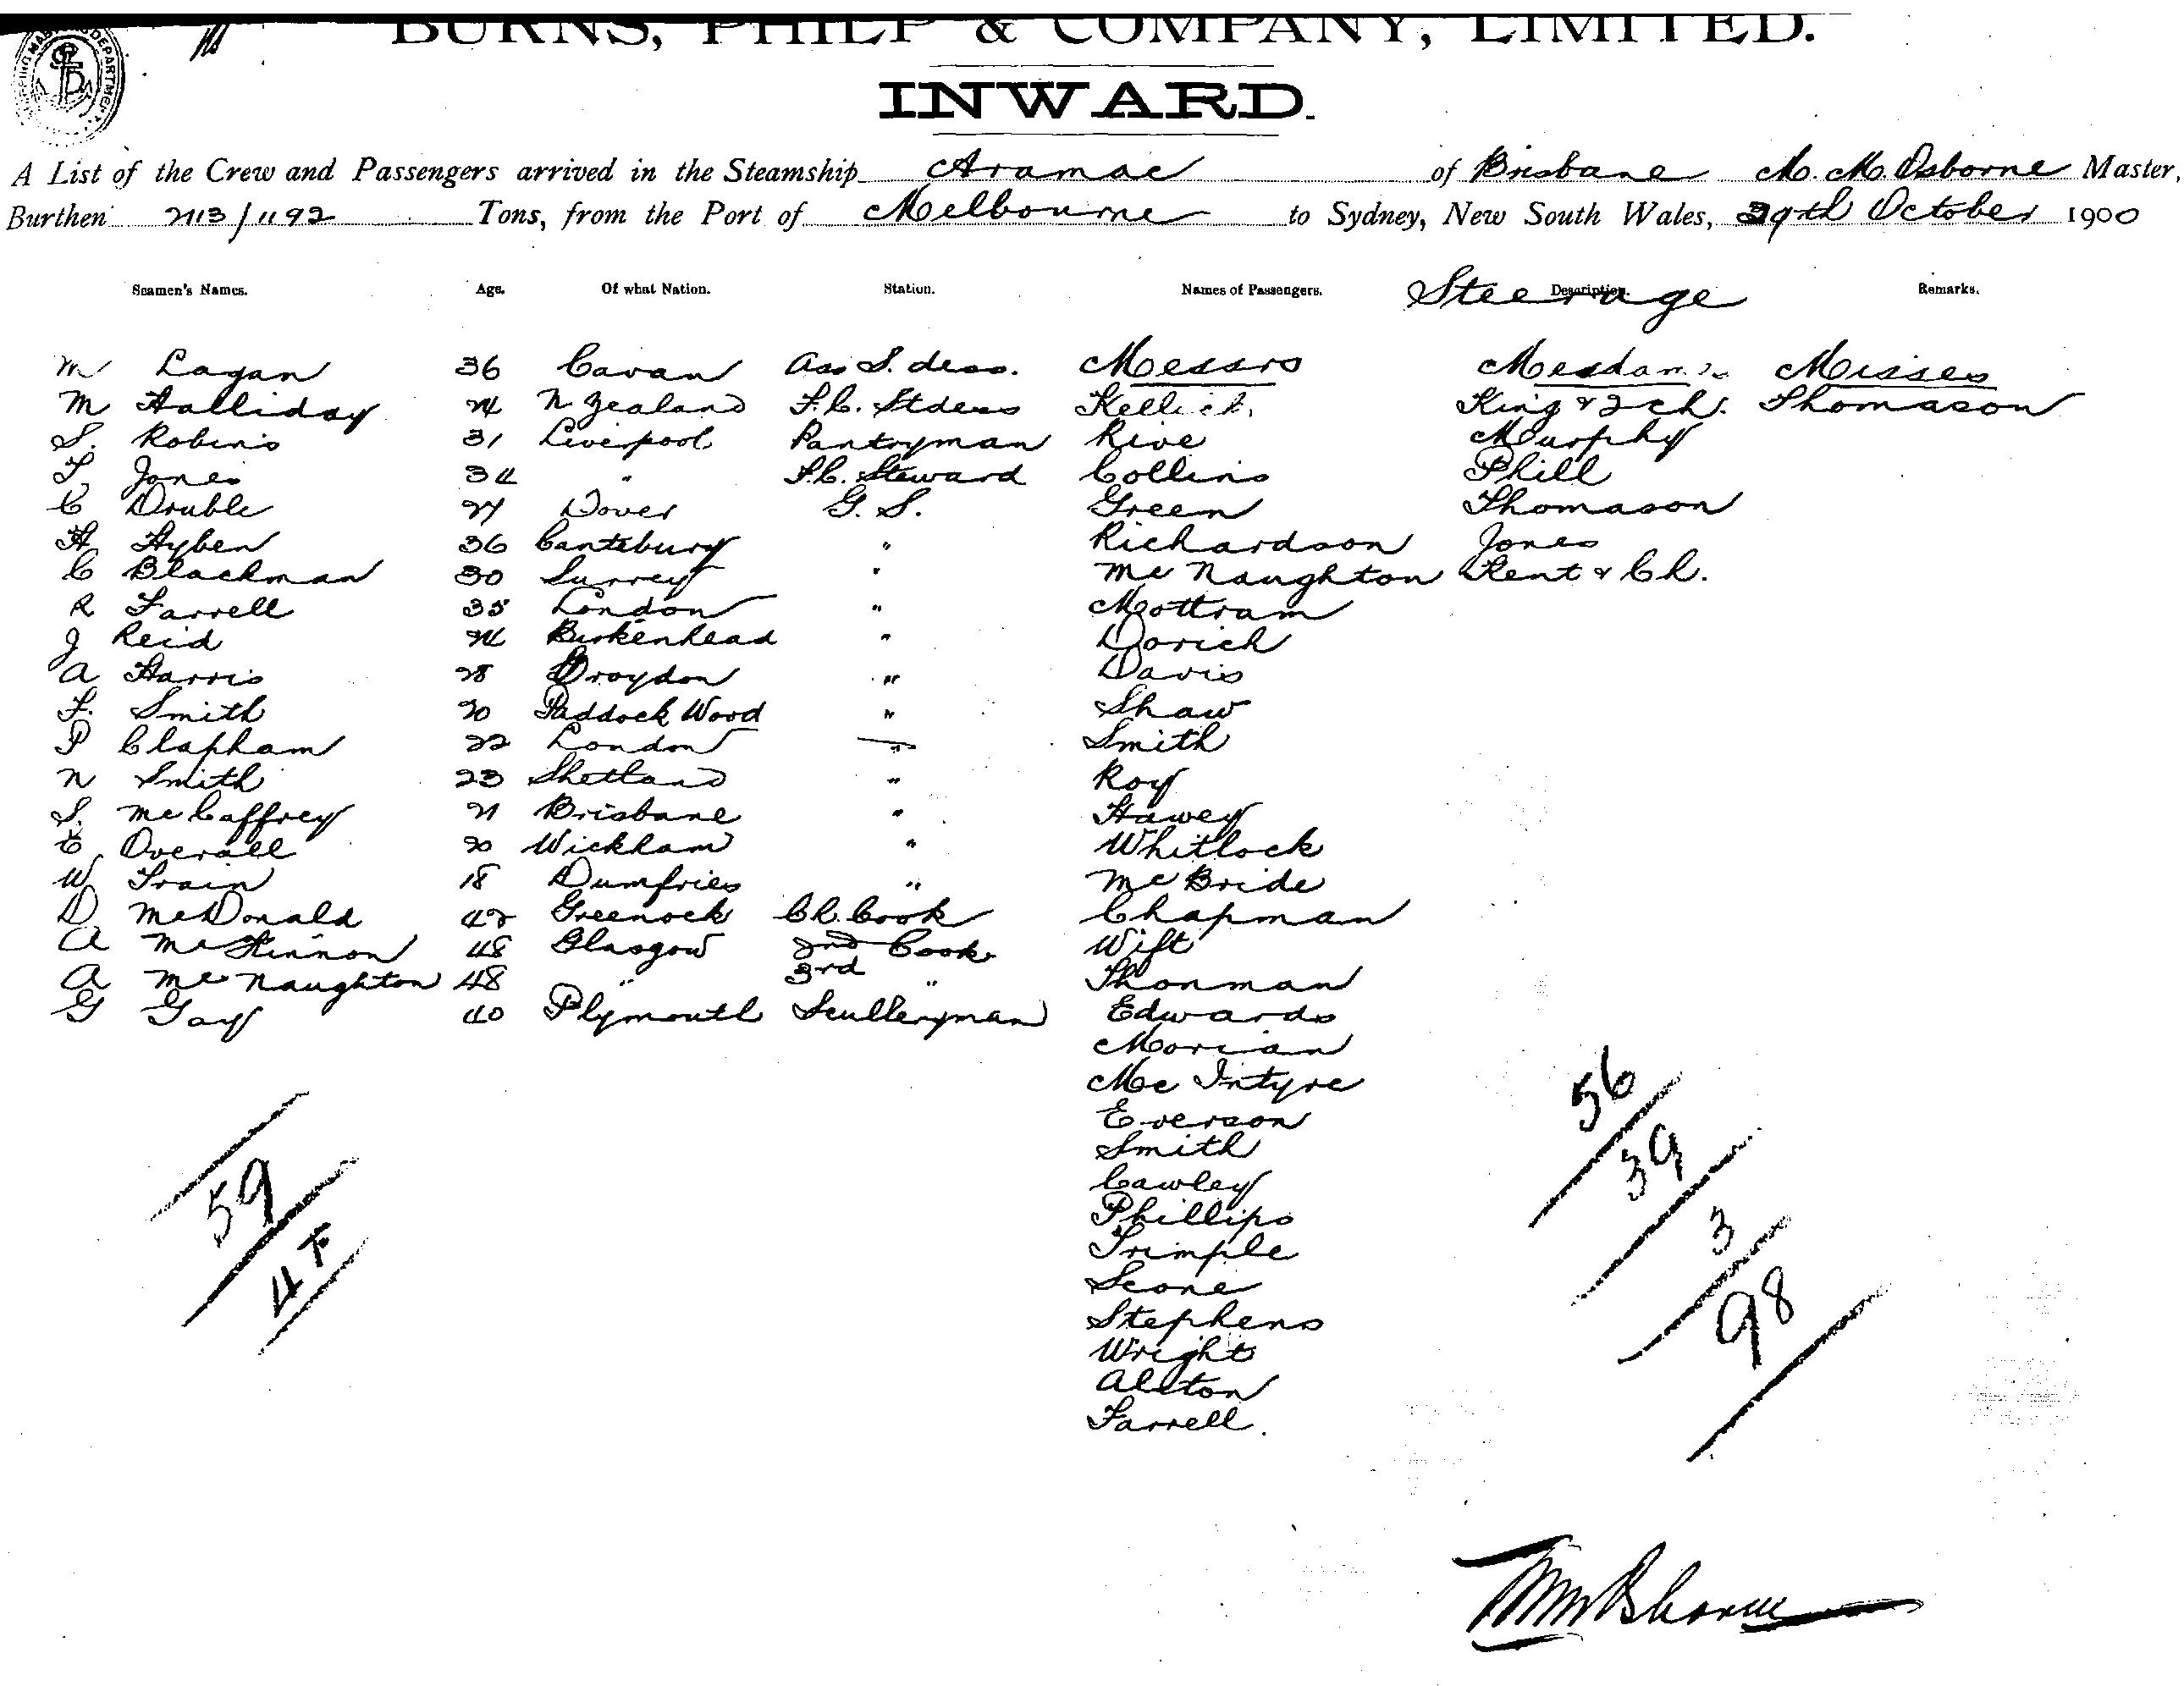 BURNS, PHILP & COMPANY, LIMITED.
INWARD.
A List of the Crew and Passengers arrived in the Steamship Aramac of Brisbane M. M. Osborne Master,
Burthen 2113/1192 Tons, from the Port of Melbourne to Sydney, New South Wales, 29th October 1900
Seamen's Names. Age. Of what Nation. Station. Names of Passengers. Description. Remarks.
Steerage
M Lagan 36 Cavan Ass S. dess. Messrs Mesdames Misses
M Halliday 24 N Zealand F.C. Stdess Kellick King & 2 ch. Thomason
S. Robins 31 Liverpool Pantryman Rive Murphy
T. Jones 34 " F.C. Steward Collins Phill
C Druble 24 Dover G. S. Green Thomason
H Hyben 36 Cantebury " Richardson Jones
C Blackman 30 Surrey " Mc Naughton Kent & Ch.
R Farrell 35 London " Mottram
J Reid 24 Burkenhead " Dorich
A Harris 28 Croydon " Davis
F. Smith 20 Paddock Wood " Shaw
P Clapham 22 London " Smith
N Smith 23 Shetland " Roy
S. McCaffrey 21 Brisbane " Hawey
E Overall 20 Wickham " Whitlock
W Train 18 Dumfries " McBride
D McDonald 42 Greenock Ch. Cook Chapman
A McKinnon 48 Glasgow 2nd Cook Wift
A McNaughton 48 " 3rd " Thonman
G Gay 40 Plymouth Sculleryman Edwards
Morian
Mc Intyre
Everson
Smith
Cawley
Phillips
Trimple
Scone
Stephens
Wright
Allton
Farrell.
59
56
39
3
98